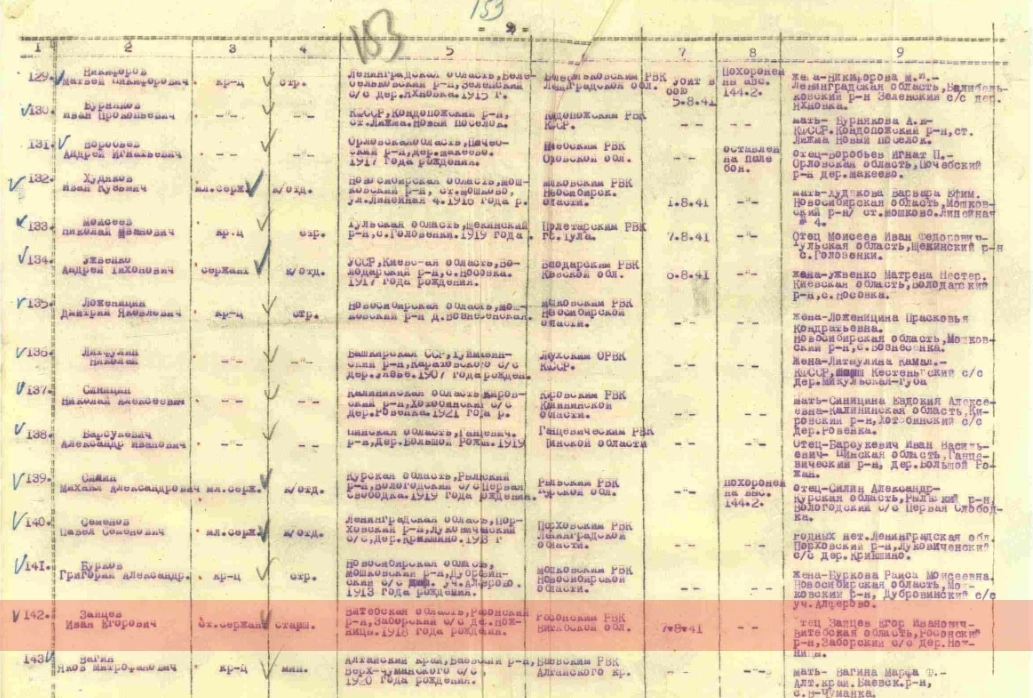 153
= 9 =
153
1 2 3 4 5 7 8 9
129. Никифоров
Матвей Никифорович. кр-ц стр.
Ленинградская область,
сельковский р-н, Зеленский
с/с дер.Яхновка.1915 г.
РВК
Ленинградской обл.
убит в
бою
5.8.41
Похоронен
на выс.
144.2.
Жена-Никифорова М.И.-
Ленинградская область,
ковский р-н Зеленский с/с дер.
Яхновка.
130.
Иван Прокопьевич -"- -"-
КФССР, Кондопожский р-н,
ст.Лижма.Новый поселок.
РВК
КФССР.
-"- -"-
мать-
КФССР.Кондопожский р-н,ст.
Лижма Новый поселок.
131. Воробьев
Андрей Игнатьевич -"- -"-
Орловская область,
р-н,дер.Макеево.
1917 года рождения.
РВК
Орловской обл.
-"-
оставлен
на поле
боя.
отец-Воробьев Игнат П.-
Орловская область,Почебский
р-н дер.Макеево.
132. Худяков
Иван Кузьмич мл.серж. к/отд.
Новосибирская область,Мош-
ковский р-н, ст.Мошково,
ул.Линейная 4.1918 года р.
Мошковским РВК
Новосибирск.
области.
1.8.41 -"-
мать-Худякова Варвара Ефим.
Новосибирская область,Мошков-
ский р-н/ ст.Мошково.Линейная
№ 4.
133. Моисеев
Николай Иванович кр.ц стр.
Тульская область,Щекинский
р-н,с.Головенки.1919 года.
Пролетарским РВК
гс.Тула.
7.8.41 -"-
Отец Моисеев Иван Федорович-
Тульская область,Щекинский р-н
с.Головенки.
134. Ужвенко
Андрей Тихонович сержант к/отд.
УССР,Киевская область,Во-
лодарский р-н,с.Носовка.
1917 года рождения.
РВК
Киевской обл.
6.8.41 -"-
жена-Ужвенко Матрена Нестер.
Киевская область,Володарский
р-н,с.Носовка.
135. Ложеницин
Дмитрий Яковлевич кр-ц стр.
Новосибирская область,Мош-
ковский р-н д.Вознесенская.
Мошковским РВК
Новосибирской
области.
-"- -"-
жена-Ложеницина Прасковья
Кондратьевна.
Новосибирская область,Мошков-
ский р-н,с.Вознесенка.
136.
Николай -"- -"-
Башкирская ССР,Туймазин-
ский р-н, с/с
1907 года рожден.
Лоухским ОРВК
КФССР.
-"- -"-
Жена-
КФССР, Кестеньгский с/с
дер.Микульская-Губа
137. Синицин
Николай Алексеевич -"- -"-
Калининская область,Киров-
ский р-н, с/с
дер.Ровенка.1921 года р.
Кировским РВК
Калининской
области.
-"- -"-
мать-Синицина Евдокия Алексе-
евна-Калининская область,Ки-
ровский р-н, с/с
дер.Ровенка.
138. Барсукевич
Александр Иванович -"- -"-
Пинская область,Ганцевич.
р-н,дер.Большой Рожан.1919
Ганцевическим РВК
Пинской области
-"- -"-
Отец-Барсукевич Иван Василь-
евич- Пинская область,Ганце-
вический р-н, дер.Большой Ро-
жан.
139. Силин
Михаил Александрович мл.серж. к/отд.
Курская область,Рыльский
р-н,Вологодский с/с Первая
слободка.1919 года рождения.
Рыльским РВК
Курской обл.
-"-
похоронен
на выс.
144.2.
отец-Силин Александр-
Курская область,Рыльский р-н,
Вологодский с/с Первая Слобод-
ка.
140. Семенов
Павел Семенович мл.серж. к/отд.
Ленинградская область,Пор-
ховский р-н,
с/с,дер.Крившино.
Порховским РВК
Ленинградской
области.
-"- -"-
родных нет.Ленинградская обл.
Порховский р-н,
с/с дер.Крившино.
141. Бурков
Григорий Александр. кр-ц стр.
Новосибирская область,
Мошковский р-н,Дубровин-
ский с/с уч.Алферово.
1913 года рождения.
Мошковским РВК
Новосибирской
области.
-"- -"-
Жена-Буркова Раиса Моисеевна.
Новосибирская область,Мош-
ковский р-н, Дубровинский с/с
уч.Алферово.
142. Зайцев
Иван Егорович ст.сержан старш.
Витебская область,Росонский
р-н,Заборский с/с дер.Нож-
ницы.1918 года рождения.
Росонским РВК
Витебской обл.
7.8.41 -"-
тец Зайцев Егор Иванович-
Витебская область,Росонский
р-н,Заборский с/с дер.Нож-
ницы.
143. Вагин
Яков Митрофанович кр-ц мин.
Алтайский край,Баевский р-н,
Верх-Чуманского с/с,
1920 года рождения.
Баевским РВК
Алтайского кр.
-"- -"-
мать- Вагина Марфа Ф.-
Алт.край.Баевск.р-н,
с.В-Чуманка.